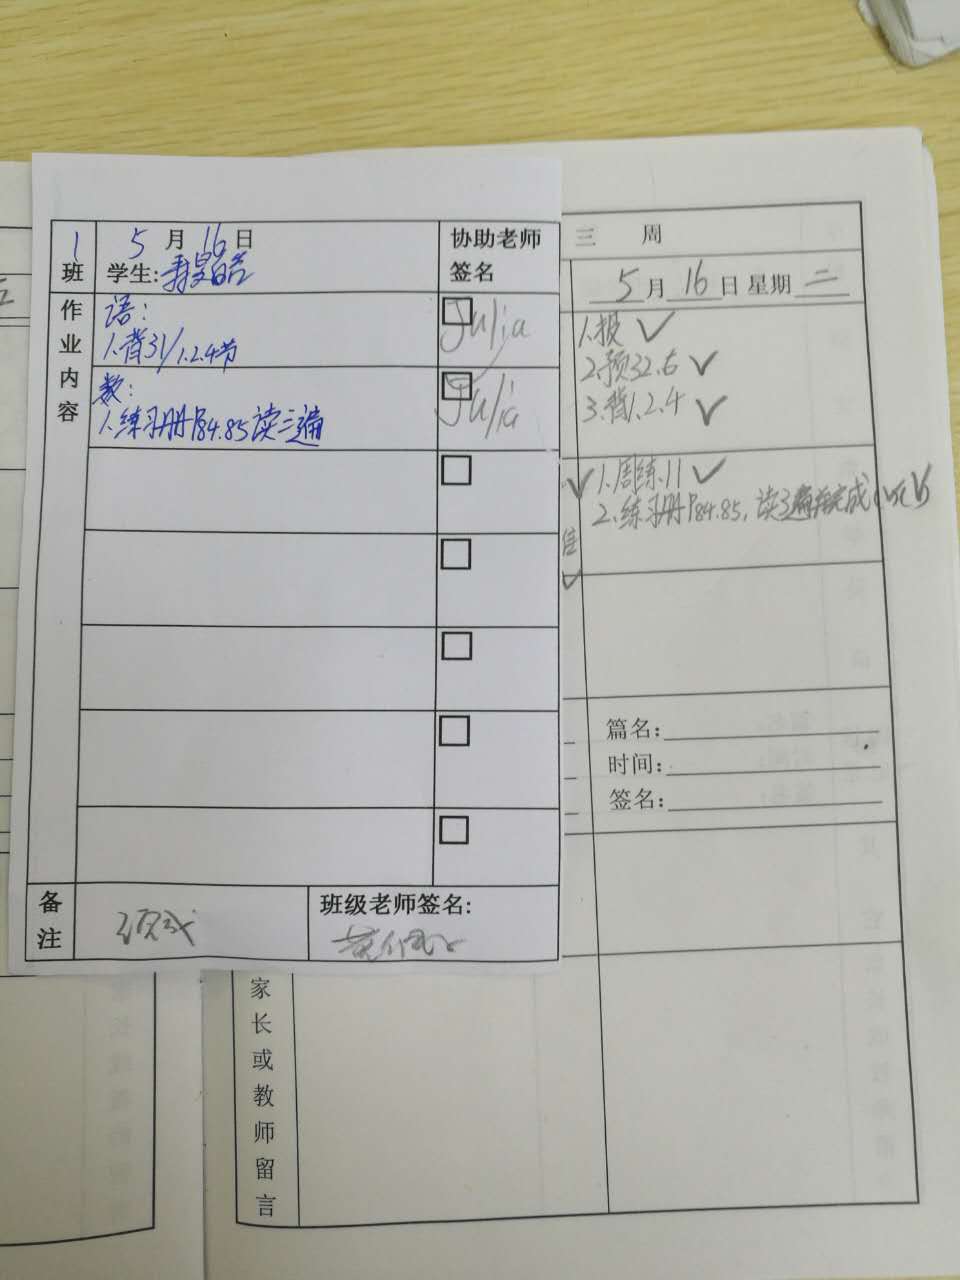 1
班
5月16日
学生:
协助老师
签名
作业内容
语:
1.背31/1.2.4节
Julia
数:
1.练习册P84.85读三遍
Julia
备注
完成
班级老师签名:
三 周
5月16日 星期二
1.报✓
2.预32.6✓
3.背1.2.4✓
1.周练.11✓
2.练习册P84.85,读三遍并完成
篇名:
时间:
签名:
家长或教师留言